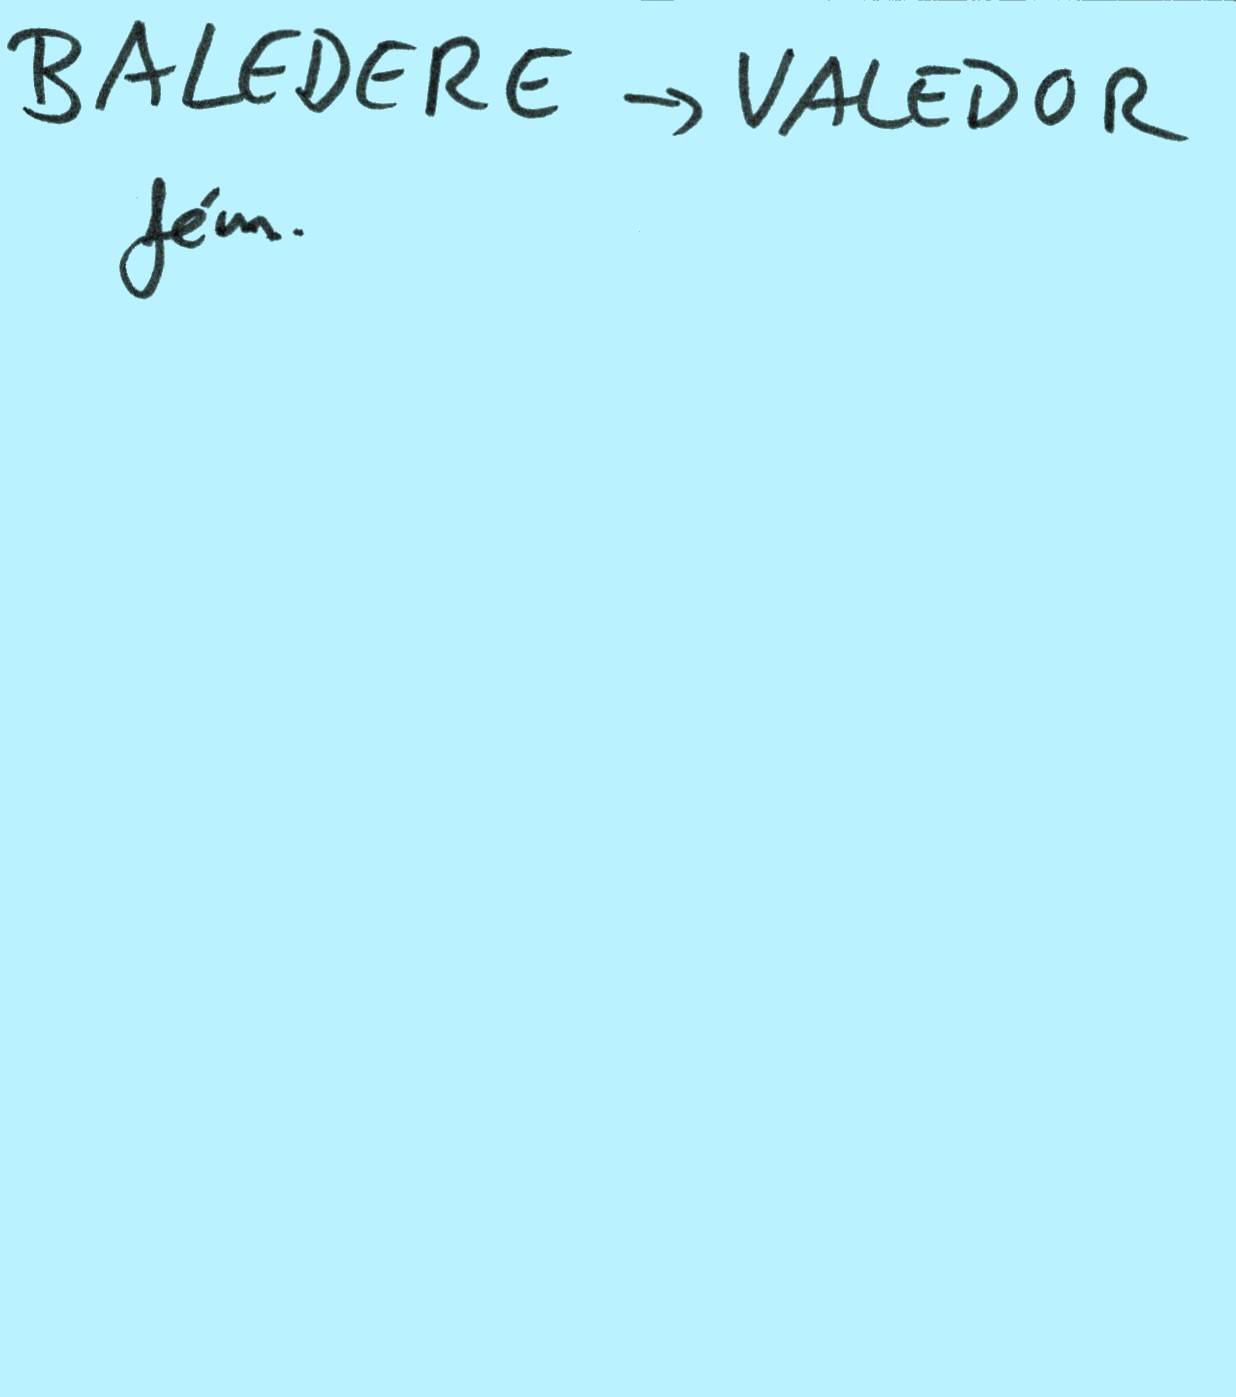 BALEDERE → VALEDOR
fém.